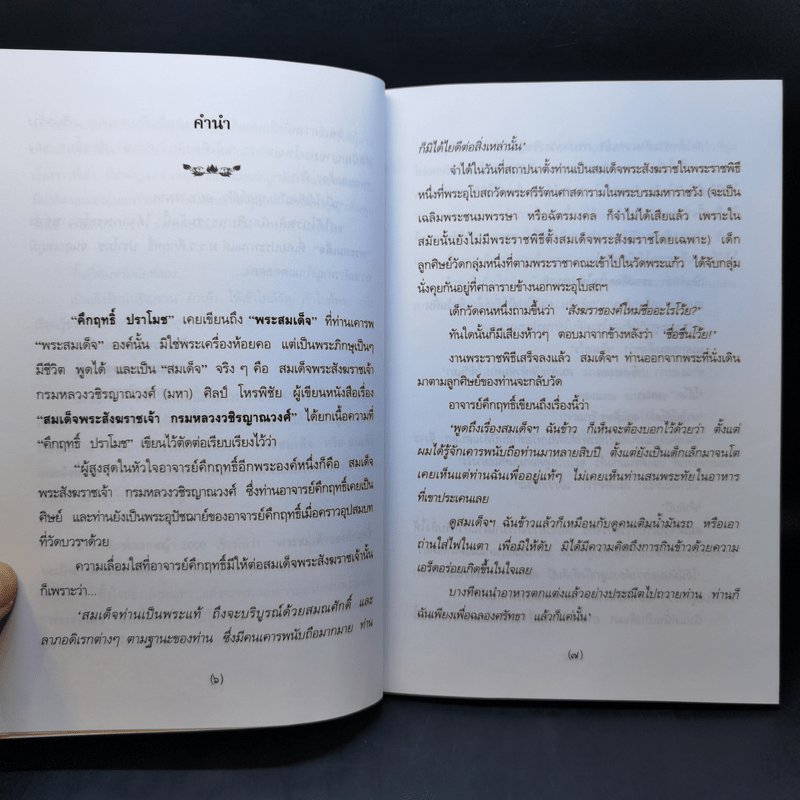 คำนำ
"คึกฤทธิ์ ปราโมช" เคยเขียนถึง "พระสมเด็จ" ที่ท่านเคารพ
"พระสมเด็จ" องค์นั้น มิใช่พระเครื่องห้อยคอ แต่เป็นพระภิกษุเป็นๆ
มีชีวิต พูดได้ และเป็น "สมเด็จ" จริงๆ คือ สมเด็จพระสังฆราชเจ้า
กรมหลวงวชิรญาณวงศ์ (มหา) ศิลป์ โหรพิชัย ผู้เขียนหนังสือเรื่อง
"สมเด็จพระสังฆราชเจ้า กรมหลวงวชิรญาณวงศ์" ได้ยกเนื้อความที่
"คึกฤทธิ์ ปราโมช" เขียนไว้ตัดต่อเรียบเรียงไว้ว่า
"ผู้สูงสุดในหัวใจอาจารย์คึกฤทธิ์อีกพระองค์หนึ่งก็คือ สมเด็จ
พระสังฆราชเจ้า กรมหลวงวชิรญาณวงศ์ ซึ่งท่านอาจารย์คึกฤทธิ์เคยเป็น
ศิษย์ และท่านยังเป็นพระอุปัชฌาย์ของอาจารย์คึกฤทธิ์เมื่อคราวอุปสมบท
ที่วัดบวรฯด้วย
ความเลื่อมใสที่อาจารย์คึกฤทธิ์มีให้ต่อสมเด็จพระสังฆราชเจ้านั้น
ก็เพราะว่า...
'สมเด็จท่านเป็นพระแท้ ถึงจะบริบูรณ์ด้วยสมณศักดิ์ และ
ลาภอดิเรกต่างๆ ตามฐานะของท่าน ซึ่งมีคนเคารพนับถือมากมาย ท่าน
(๖)
ก็มิได้ไยดีต่อสิ่งเหล่านั้น'
จำได้ในวันที่สถาปนาตั้งท่านเป็นสมเด็จพระสังฆราชในพระราชพิธี
หนึ่งที่พระอุโบสถวัดพระศรีรัตนศาสดารามในพระบรมมหาราชวัง (จะเป็น
เฉลิมพระชนมพรรษา หรือฉัตรมงคล ก็จำไม่ได้เสียแล้ว เพราะใน
สมัยนั้นยังไม่มีพระราชพิธีตั้งสมเด็จพระสังฆราชโดยเฉพาะ) เด็ก
ลูกศิษย์วัดกลุ่มหนึ่งที่ตามพระราชาคณะเข้าไปในวัดพระแก้ว ได้จับกลุ่ม
นั่งคุยกันอยู่ที่ศาลารายข้างนอกพระอุโบสถฯ
เด็กวัดคนหนึ่งถามขึ้นว่า 'สังฆราชองค์ใหม่ชื่ออะไรโว้ย?'
ทันใดนั้นก็มีเสียงห้าวๆ ตอบมาจากข้างหลังว่า 'ชื่อชื่นโว้ย!'
งานพระราชพิธีเสร็จลงแล้ว สมเด็จฯ ท่านออกจากพระที่นั่งเดิน
มาตามลูกศิษย์ของท่านจะกลับวัด
อาจารย์คึกฤทธิ์เขียนถึงเรื่องนี้ว่า
'พูดถึงเรื่องสมเด็จฯ ฉันข้าว ก็เห็นจะต้องบอกไว้ด้วยว่า ตั้งแต่
ผมได้รู้จักเคารพนับถือท่านมาหลายสิบปี ตั้งแต่ยังเป็นเด็กเล็กมาจนโต
เคยเห็นแต่ท่านฉันเพื่ออยู่แท้ๆ ไม่เคยเห็นท่านสนพระทัยในอาหาร
ที่เขาประเคนเลย
ดูสมเด็จฯ ฉันข้าวแล้วก็เหมือนกับดูคนเติมน้ำมันรถ หรือเอา
ถ่านใส่ไฟในเตา เพื่อมิให้ดับ มิได้มีความคิดถึงการกินข้าวด้วยความ
เอร็ดอร่อยเกิดขึ้นในใจเลย
บางทีคนนำอาหารตกแต่งแล้วอย่างประณีตไปถวายท่าน ท่านก็
ฉันเพียงเพื่อฉลองศรัทธา แล้วก็แค่นั้น'
(๗)